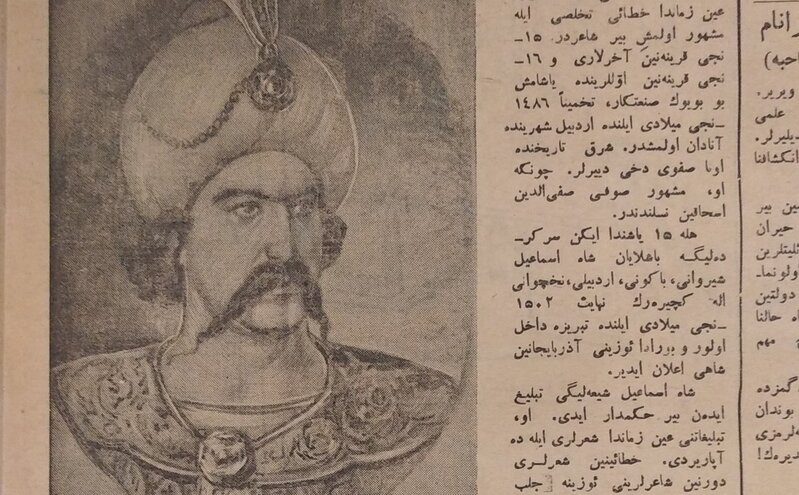 عین زماندا خطائی تخلصی ایله
مشهور اولمش بیر شاعردر ۱۵ـ
نجی قرینه‌نین آخرلاری و ۱۶ـ
نجی قرینه‌نین اوّللرینده یاشامش
بو بویوك صنعتكار، تخمیناً ۱۴۸۶
ـنجی میلادی ایلنده اردبیل شهرینده
آنادان اولمشدر. شرق تاریخنده
اونا صفوی دخی دییرلر. چونكه
او، مشهور صوفی صفی‌الدین
اسحاقین نسلندندر.
هله ۱۵ یاشندا ایكن سركرـ
ده‌لیگه باشلایان شاه اسماعیل
شیروانی، باكونی، اردبیلی، نخچوانی
اله كچیره‌رك نهایت ۱۵۰۲
ـنجی میلادی ایلنده تبریزه داخل
اولور و بورادا ئوزینی آذربایجانین
شاهی اعلان ایدیر.
شاه اسماعیل شیعه‌لیگی تبلیغ
ایده‌ن بیر حكمدار ایدی. او،
تبلیغاتنی عین زماندا شعرلری ایله ده
آپاریردی. خطائینین شعرلری
دورنین شاعرلرینی ئوزینه جلب
رانام
احبه)
ویریر.
علمی
دیلیرلر.
انكشافنا
ین بیر
حیران
ئلیتلرین
ولونماـ
دولتین
ه حالنا
مهم
گمزده
بوندان
ه‌لرمزی
دیره‌ك!